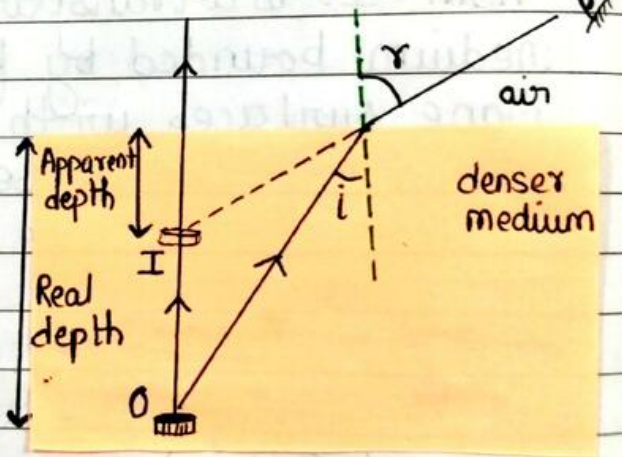 r
air
Apparent
depth
i
denser
medium
I
Real
depth
O